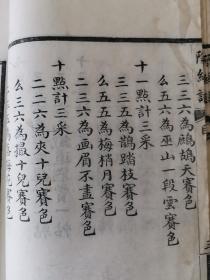 除紅譜
三三六為鷓鴣天賽色
么五六為巫山一段雲賽色
十一點計三采
三三五為鵲踏枝賽色
么五五為梅梢月賽色
二三六為画眉不盡賽色
十點計三采
二二六為夾十兒賽色
么三六為撮十兒賽色